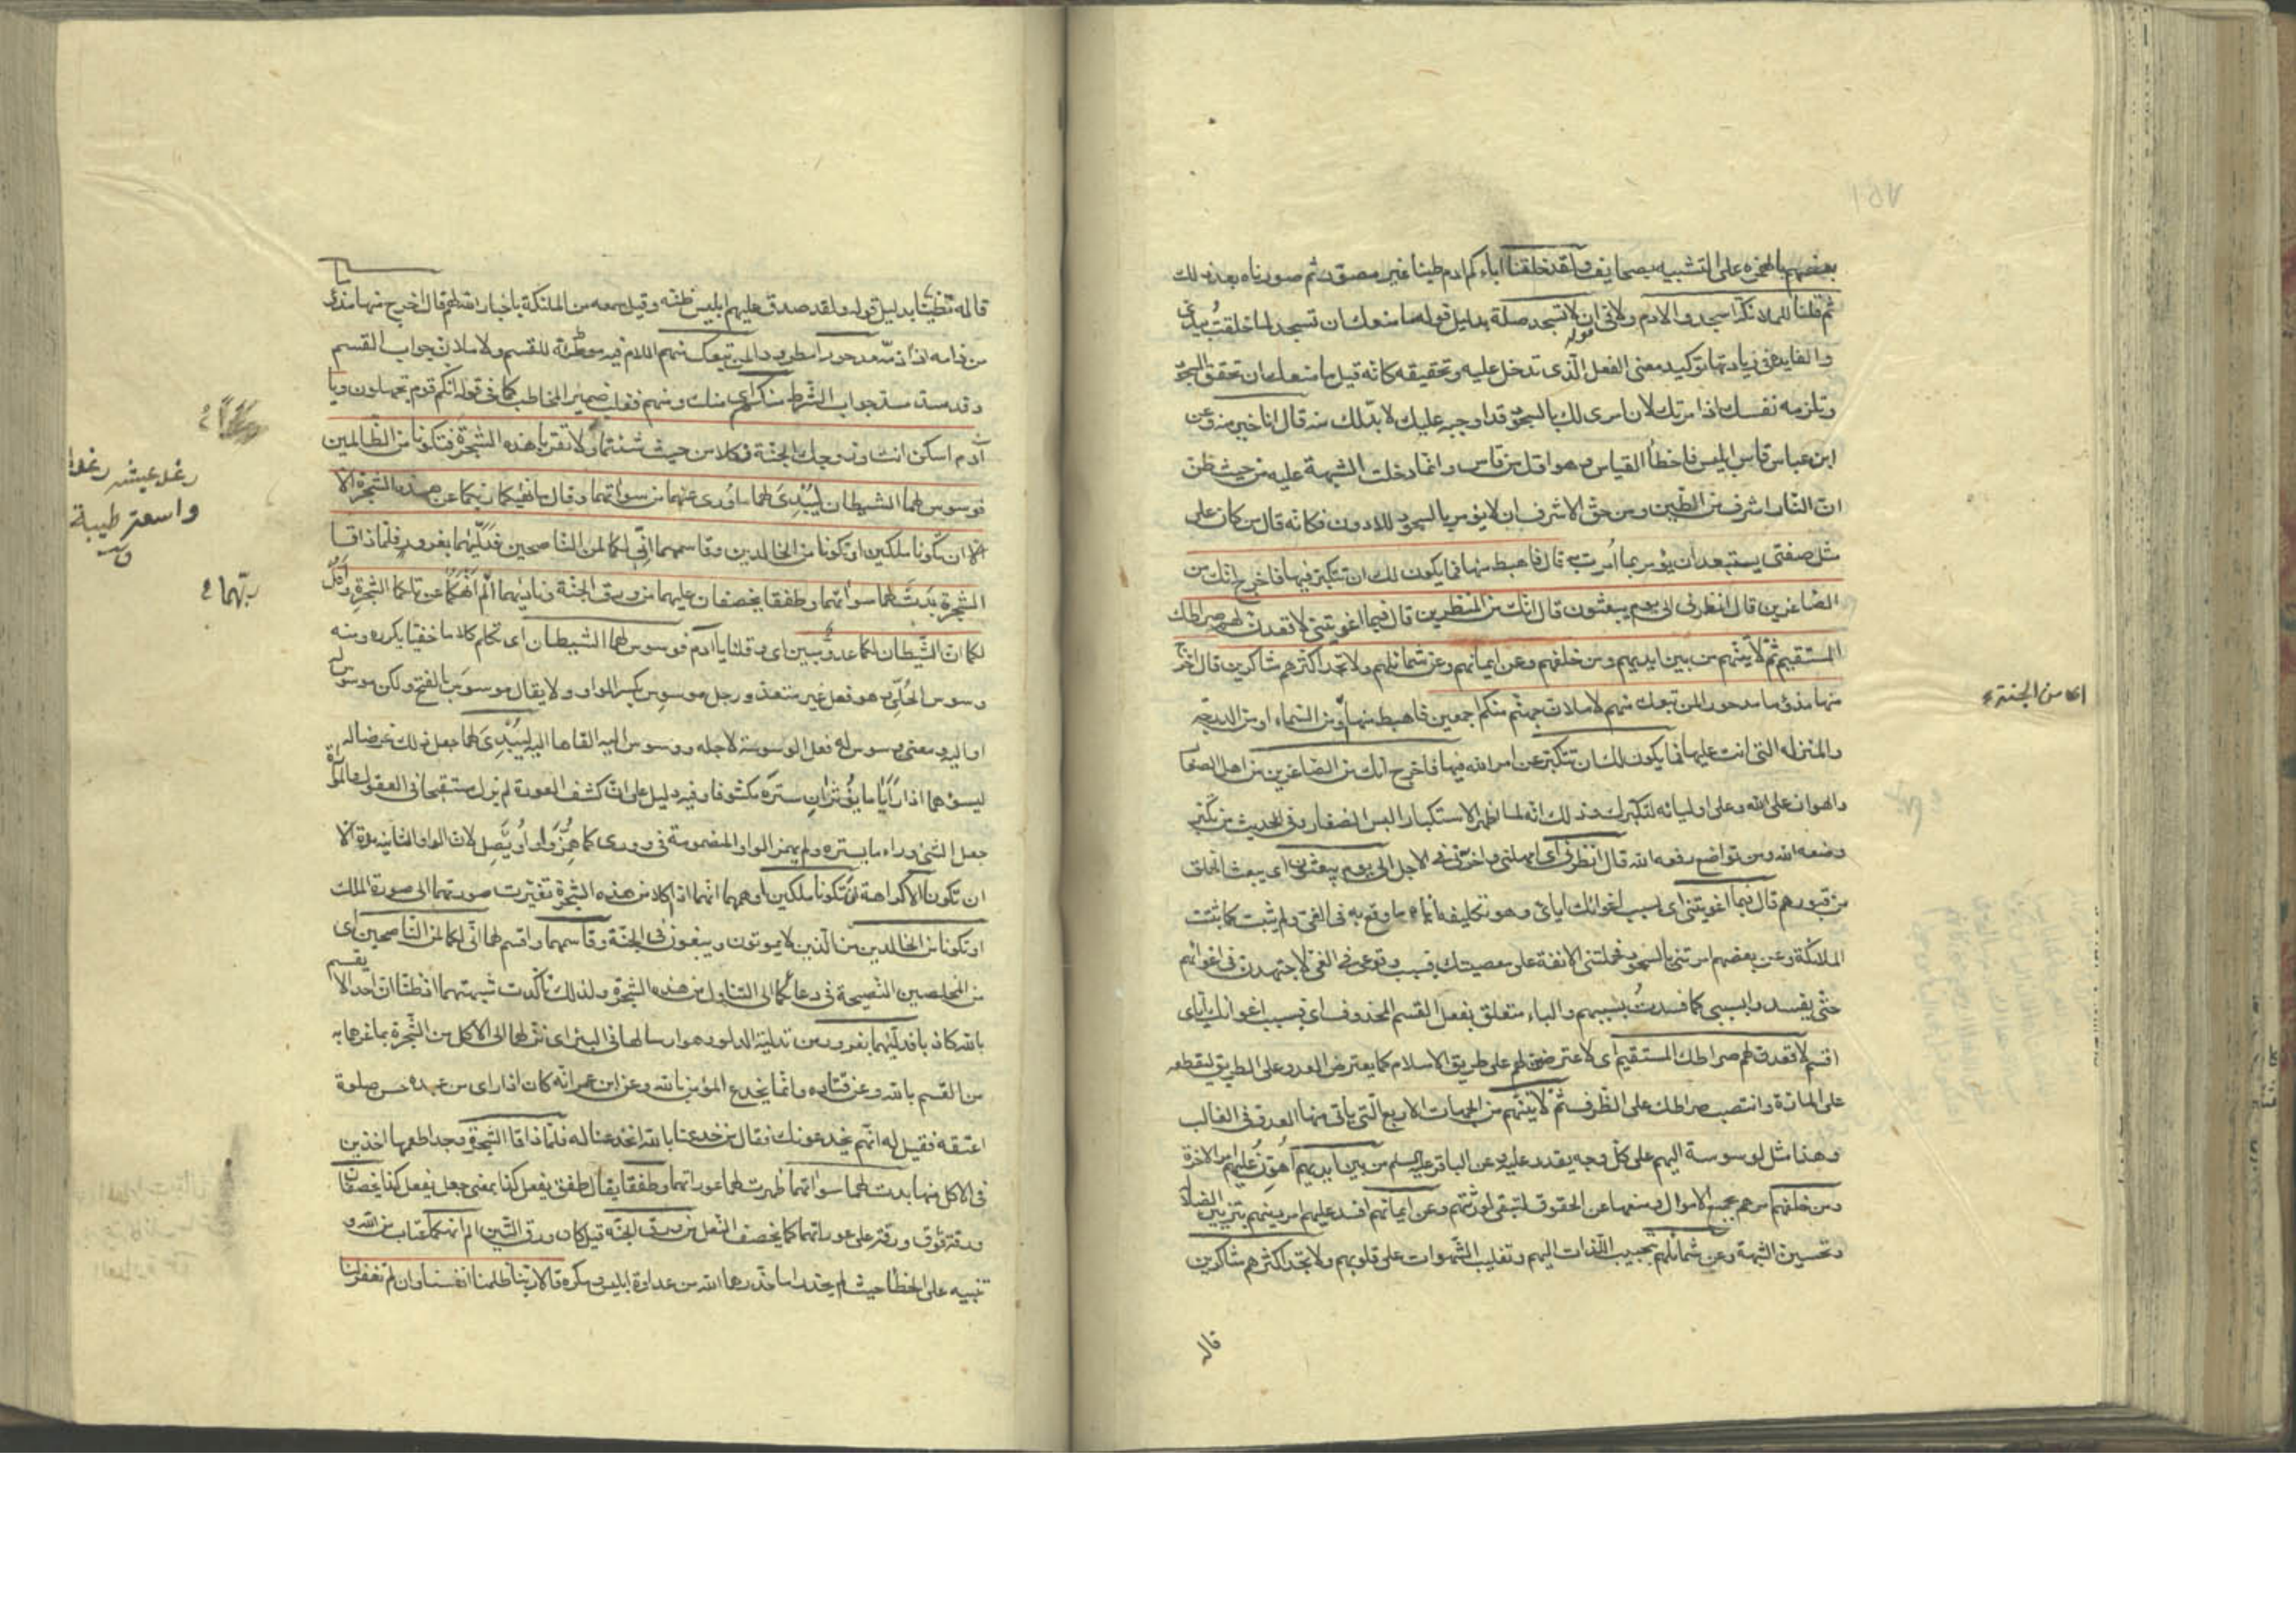 بعضهم بالهمزة على التشبيه بصحايف ولقد خلقنا اباءكم ادم طينا غير مصور ثم صورناه بعد ذلك
ثم قلنا للملائكة اسجدوا لادم ولا في ان لا تسجد صلة بدليل قوله ما منعك ان تسجد لما خلقت بيدي
والفايدة في زيادتها توكيد معنى الفعل الذي تدخل عليه وتحقيقه كانه قيل ما منعك ان تحقق السجود
وتلزمه نفسك اذ امرتك لان امري لك بالسجود قد اوجبه عليك لا بد لك منه قال انا خير منه وعن
ابن عباس قاس ابليس فاخطأ القياس وهو اول من قاس وانما دخلت الشبهة عليه من حيث ظن
ان النار اشرف من الطين ومن حق الاشرف ان لا يؤمر بالسجود للادون فكانه قال من كان على
مثل صفتي يستبعد ان يؤمر بما امرت به قال فاهبط منها فما يكون لك ان تتكبر فيها فاخرج انك من
الصاغرين قال انظرني الى يوم يبعثون قال انك من المنظرين قال فبما اغويتني لاقعدن لهم صراطك
المستقيم ثم لآتينهم من بين ايديهم ومن خلفهم وعن ايمانهم وعن شمائلهم ولا تجد اكثرهم شاكرين قال اخرج
منها مذؤما مدحورا لمن تبعك منهم لاملان جهنم منكم اجمعين فاهبط منها من السماء او من الدرجة
والمنزلة التي انت عليها فما يكون لك ان تتكبر عن امر الله فيها فاخرج انك من الصاغرين من اهل الصغار
والهوان على الله وعلى اوليائه لتكبرك وذلك انه لما اظهر الاستكبار البس الصغار وفي الحديث من تكبر
وضعه الله ومن تواضع رفعه الله قال انظرني اي امهلني واخرني في الاجل الى يوم يبعثون اي يبعث الخلق
من قبورهم قال فبما اغويتني اي بسبب اغوائك اياي وهو تكليفه اياه ما وقع به في الغي ولم يثبت كما ثبتت
الملائكة وعن بعضهم امرتني بالسجود فحملتني الانفة على معصيتك فبسبب وقوعي في الغي لاجتهدن في اغوائهم
حتى يفسدوا بسببي كما فسدت بسببهم والباء متعلق بفعل القسم المحذوف اي فبسبب اغوائك اياي
اقسم لاقعدن لهم صراطك المستقيم اي لاعترضن لهم على طريق الاسلام كما يعترض العدو على الطريق ليقطعه
على المارة وانتصب صراطك على الظرف ثم لآتينهم من الجهات الاربع التي ياتي منها العدو في الغالب
وهذا مثل لوسوسة اليهم على كل وجه يقدر عليه وعن الباقر عليه السلم من بين ايديهم اهون عليهم امر الآخرة
ومن خلفهم بجمع الاموال ومنعها عن الحقوق لتبقى لورثتهم وعن ايمانهم افسد عليهم امر دينهم بتزيين الضلالة
وتحسين الشبهة وعن شمائلهم بتحبيب اللذات اليهم وتغليب الشهوات على قلوبهم ولا تجد اكثرهم شاكرين
قاله
اي من الجنة
قاله تظنيا بدليل قوله ولقد صدق عليهم ابليس ظنه وقيل سمعه من الملئكة باخبار الله لهم قال اخرج منها مذؤما
من ذامه اذا ذمه مدحورا مطرودا لمن تبعك منهم اللام فيه موطئة للقسم ولاملان جواب القسم
وقد سد مسد جواب الشرط منكم اي منك ومنهم فغلب ضمير المخاطب كما في قوله انكم قوم تجهلون ويا
آدم اسكن انت وزوجك الجنة فكلا من حيث شئتما ولا تقربا هذه الشجرة فتكونا من الظالمين
فوسوس لهما الشيطان ليبدي لهما ما وري عنهما من سوآتهما وقال ما نهيكما ربكما عن هذه الشجرة الا
ان تكونا ملكين او تكونا من الخالدين وقاسمهما اني لكما لمن الناصحين فدليهما بغرور فلما ذاقا
الشجرة بدت لهما سوآتهما وطفقا يخصفان عليهما من ورق الجنة وناديهما الم انهكما عن تلكما الشجرة واقل
لكما ان الشيطان لكما عدو مبين اي وقلنا يا آدم فوسوس لهما الشيطان اي تكلم كلاما خفيا يكرره ومنه
وسوس الحلي وهو فعل غير متعد ورجل موسوس بكسر الواو ولا يقال موسوس بالفتح ولكن موسوس له
او اليه ومعنى وسوس له فعل الوسوسة لاجله ووسوس اليه القاها اليه ليبدي لهما جعل ذلك غرضا له
ليسوءهما اذا رأيا ما يؤثران ستره مكشوفا وفيه دليل على ان كشف العورة لم يزل مستقبحا في العقول
جعل الشئ وراء ما يستره ولم يهمز الواو المضمومة في ووري كما همز واو اويصل لان الواو الثانية مدة الا
ان تكونا الا كراهة ان تكونا ملكين اوهمهما انهما اذا اكلا من هذه الشجرة تغيرت صورتهما الى صورة الملك
او تكونا من الخالدين من الذين لا يموتون ويبقون في الجنة وقاسمهما واقسم لهما اني لكما لمن الناصحين اي
من المخلصين النصيحة في دعائكما الى التناول من هذه الشجرة ولذلك تأكدت شبهتهما اذ ظنا ان احدا لا يقسم
بالله كاذبا فدليهما بغرور من تدلية الدلو وهو ارسالها في البئر اي نزلهما الى الاكل من الشجرة بما غرهما به
من القسم بالله وعن قتاده وانما يخدع المؤمن بالله وعن ابن عمر انه كان اذا راى من عبده حسن صلوة
اعتقه فقيل له انهم يخدعونك فقال من خدعنا بالله انخدعنا له فلما ذاقا الشجرة وجدا طعمها اخذين
في الاكل منها بدت لهما سوآتهما ظهرت لهما عوراتهما وطفقا يقال طفق يفعل كذا بمعنى جعل يفعل كذا يخصفان
ورقة فوق ورقة على عوراتهما كما يخصف النعل من ورق الجنة قيل كان ورق التين الم انهكما عتاب من الله و
تنبيه على الخطا حيث لم يحذرا ما حذرهما الله من عداوة ابليس ومكره قالا ربنا ظلمنا انفسنا وان لم تغفر لنا
رغد عيشه رغدا
واسعة طيبة
ق
ربهما